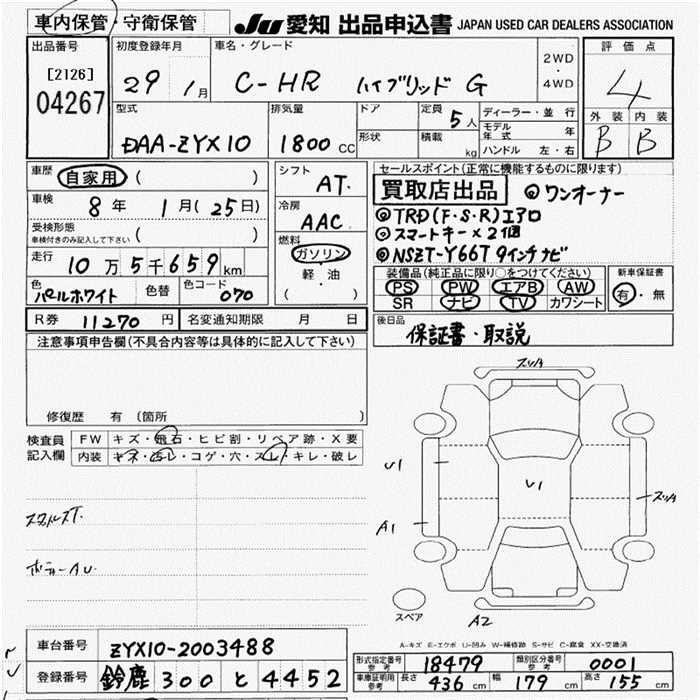 車内保管・守衛保管
JU 愛知 出品申込書 JAPAN USED CAR DEALERS ASSOCIATION
出品番号
[2126]
04267
初度登録年月
29 1月
車名・グレード
C-HR ハイブリッド G
2WD
・
4WD
評価点
4
外装 内装
B B
型式
DAA-ZYX10
排気量
1800 CC
ドア
形状
定員 5人
積載 kg
ディーラー・並行
モデル年式 年
ハンドル 左・右
車歴 自家用 ( )
車検 8年 1月(25日)
受検形態
車検付きのみ記入して下さい ( )
走行 10万5千659km
色 パールホワイト
色替
色コード 070
シフト AT.
冷房 AAC
燃料
ガソリン
軽・油
( )
セールスポイント(正常に機能するものに限り)
買取店出品 ◎ワンオーナー
◎TRD(F・S・R)エアロ
◎スマートキー×2個
◎NSZT-Y66T 9インチナビ
装備品(純正品に限り○をつけてください)
PS PW エアB AW
SR ナビ TV カワシート
新車保証書
有・無
R券 11270円
名変通知期限 月 日
後日品
保証書・取説
注意事項申告欄(不具合内容等は具体的に記入して下さい)
修復歴 有 (箇所 )
検査員
記入欄
FW キズ・飛石・ヒビ割・リペア跡・X要
内装 キズ・汚レ・コゲ・穴・スレ・キレ・破レ
スリキズ
U1
U1
A1
スリキズ
A2
スペア
ボデーAU.
A-キズ E-エクボ U-凹み W-補修跡 S-サビ C-腐食 XX-交換済
車台番号 ZYX10-2003488
登録番号 鈴鹿 300 と 4452
形式指定番号
参考 18479
類別区分番号
参考 0001
車庫証明用
参考 長さ 436cm 幅 179cm 高さ 155cm